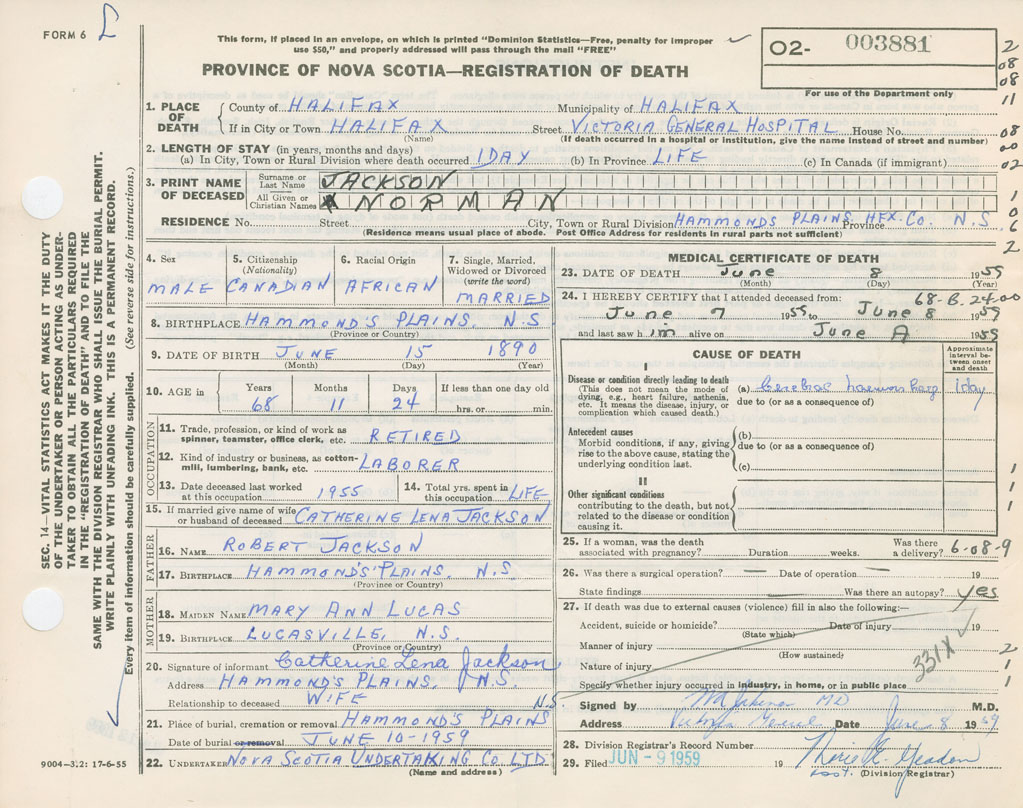 FORM 6
This form, if placed in an envelope, on which is printed "Dominion Statistics—Free, penalty for improper
use $50," and properly addressed will pass through the mail "FREE"
PROVINCE OF NOVA SCOTIA—REGISTRATION OF DEATH
O2- 003881
For use of the Department only
2
08
08
11
08
00
02
1
0
6
2
SEC. 14—VITAL STATISTICS ACT MAKES IT THE DUTY
OF THE UNDERTAKER OR PERSON ACTING AS UNDER-
TAKER TO OBTAIN ALL THE PARTICULARS REQUIRED
IN THE "REGISTRATION OF DEATH" AND TO FILE THE
SAME WITH THE DIVISION REGISTRAR WHO SHALL ISSUE THE BURIAL PERMIT.
WRITE PLAINLY WITH UNFADING INK. THIS IS A PERMANENT RECORD.
Every item of information should be carefully supplied. (See reverse side for instructions.)
1. PLACE OF DEATH
County of HALIFAX Municipality of HALIFAX
If in City or Town HALIFAX Street VICTORIA GENERAL HOSPITAL House No.
(Name) (If death occurred in a hospital or institution, give the name instead of street and number)
2. LENGTH OF STAY (in years, months and days)
(a) In City, Town or Rural Division where death occurred 1 DAY (b) In Province LIFE (c) In Canada (if immigrant)
3. PRINT NAME OF DECEASED
Surname or Last Name JACKSON
All Given or Christian Names NORMAN
RESIDENCE No. Street City, Town or Rural Division HAMMONDS PLAINS, HFX. Co. Province N.S
(Residence means usual place of abode. Post Office Address for residents in rural parts not sufficient)
4. Sex MALE
5. Citizenship (Nationality) CANADIAN
6. Racial Origin AFRICAN
7. Single, Married, Widowed or Divorced (write the word) MARRIED
8. BIRTHPLACE HAMMOND'S PLAINS, N.S
(Province or Country)
9. DATE OF BIRTH JUNE 15 1890
(Month) (Day) (Year)
10. AGE in Years 68 Months 11 Days 24 If less than one day old hrs. or min.
OCCUPATION
11. Trade, profession, or kind of work as spinner, teamster, office clerk, etc. RETIRED
12. Kind of industry or business, as cotton-mill, lumbering, bank, etc. LABORER
13. Date deceased last worked at this occupation 1955
14. Total yrs. spent in this occupation LIFE
15. If married give name of wife or husband of deceased CATHERINE LENA JACKSON
FATHER
16. NAME ROBERT JACKSON
17. BIRTHPLACE HAMMOND'S PLAINS, N.S.
(Province or Country)
MOTHER
18. MAIDEN NAME MARY ANN LUCAS
19. BIRTHPLACE LUCASVILLE, N.S.
(Province or Country)
20. Signature of informant Catherine Lena Jackson
Address HAMMOND'S PLAINS, N.S.
Relationship to deceased WIFE
21. Place of burial, cremation or removal HAMMOND'S PLAINS N.S
Date of burial or removal JUNE 10-1959
22. UNDERTAKER NOVA SCOTIA UNDERTAKING Co. LTD
(Name and address)
9004-3,2: 17-6-55
MEDICAL CERTIFICATE OF DEATH
23. DATE OF DEATH June 8 1959
(Month) (Day) (Year)
24. I HEREBY CERTIFY that I attended deceased from: 68-B. 24-00
June 7 1959 to June 8 1959
and last saw him alive on June 1959
CAUSE OF DEATH
Approximate interval between onset and death
I
Disease or condition directly leading to death
(This does not mean the mode of dying, e.g., heart failure, asthenia, etc. It means the disease, injury, or complication which caused death.)
(a) Cerebral 1 day
due to (or as a consequence of)
Antecedent causes
Morbid conditions, if any, giving rise to the above cause, stating the underlying condition last.
(b)
due to (or as a consequence of)
(c)
II
Other significant conditions
contributing to the death, but not related to the disease or condition causing it.
1
1
25. If a woman, was the death associated with pregnancy? Duration weeks. Was there a delivery? 6-08-9
26. Was there a surgical operation? — Date of operation — 19
State findings Was there an autopsy? yes
27. If death was due to external causes (violence) fill in also the following:—
Accident, suicide or homicide? Date of injury 19
(State which)
Manner of injury 2
(How sustained)
Nature of injury 331X 1
Specify whether injury occurred in industry, in home, or in public place 1
Signed by M.D. M.D.
Address Victoria General Date June 8 1959
28. Division Registrar's Record Number
29. Filed JUN - 9 1959 19
(Division Registrar)